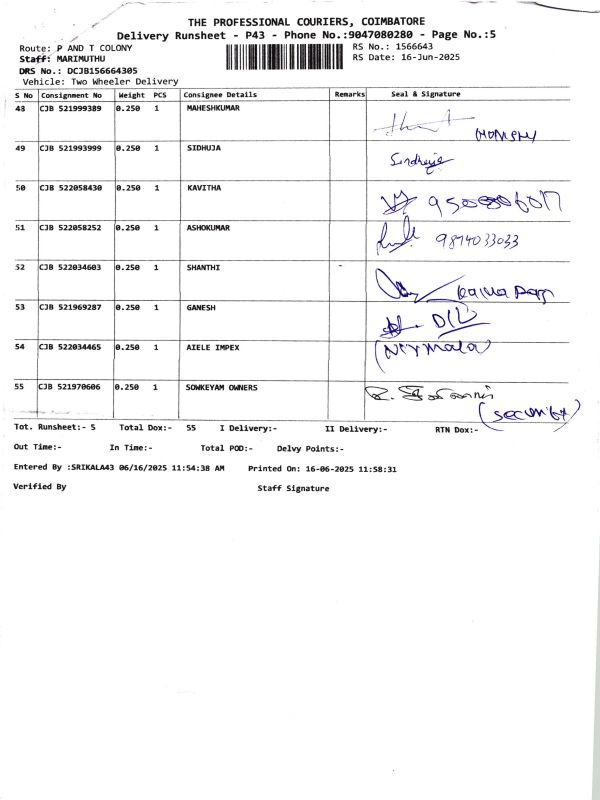 THE PROFESSIONAL COURIERS, COIMBATORE
Delivery Runsheet - P43 - Phone No.:9047080280 - Page No.:5
Route: P AND T COLONY
RS No.: 1566643
Staff: MARIMUTHU
RS Date: 16-Jun-2025
DRS No.: DCJB156664305
Vehicle: Two Wheeler Delivery
S No Consignment No Weight PCS Consignee Details Remarks Seal & Signature
48 CJB 521999389 0.250 1 MAHESHKUMAR
49 CJB 521993999 0.250 1 SIDHUJA
Sindhuja
50 CJB 522058430 0.250 1 KAVITHA
51 CJB 522058252 0.250 1 ASHOKUMAR
9894033033
52 CJB 522034603 0.250 1 SHANTHI -
53 CJB 521969287 0.250 1 GANESH
54 CJB 522034465 0.250 1 AIELE IMPEX
(Nirmala)
55 CJB 521970606 0.250 1 SOWKEYAM OWNERS
(security)
Tot. Runsheet:- 5 Total Dox:- 55 I Delivery:- II Delivery:- RTN Dox:-
Out Time:- In Time:- Total POD:- Delvy Points:-
Entered By :SRIKALA43 06/16/2025 11:54:38 AM Printed On: 16-06-2025 11:58:31
Verified By Staff Signature